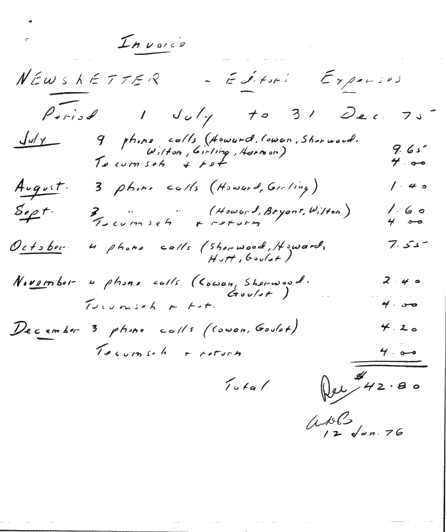 Invoice
NEWSLETTER - Editor's Expenses
Period 1 July to 31 Dec. 75
July 9 phone calls (Howard, Cowan, Sherwood.
Wilton, Girling, Harmon) 9.65
Tecumseh & ret 4.00
August. 3 phone calls (Howard, Girling) 1.40
Sept. 3 " " (Howard, Bryant, Wilton) 1.60
Tecumseh & return 4.00
October. 4 phone calls (Sherwood, Howard, 7.55
Hutt, Goulet)
November 4 phone calls (Cowan, Sherwood. 2.40
Goulet)
Tecumseh & ret. 4.00
December 3 phone calls (Cowan, Goulet) 4.20
Tecumseh & return 4.00
Total $42.80
12 Jan. 76